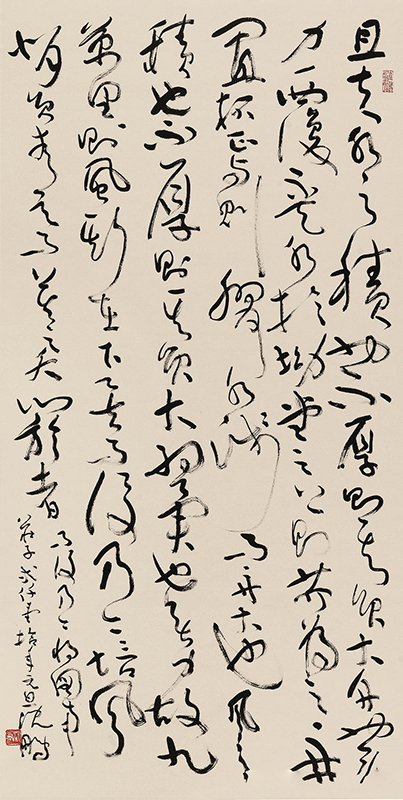 且夫水之積也不厚則其負大舟無
力覆盃水於坳堂之上則芥為之舟
置杯焉則膠水淺而舟大也風之
積也不厚則其負大翼也無力故九
萬里則風斯在下矣而後乃今培風
背負青天而莫之夭閼者
而後乃今將圖南
莊子弍仟零拾年元旦沈鵬